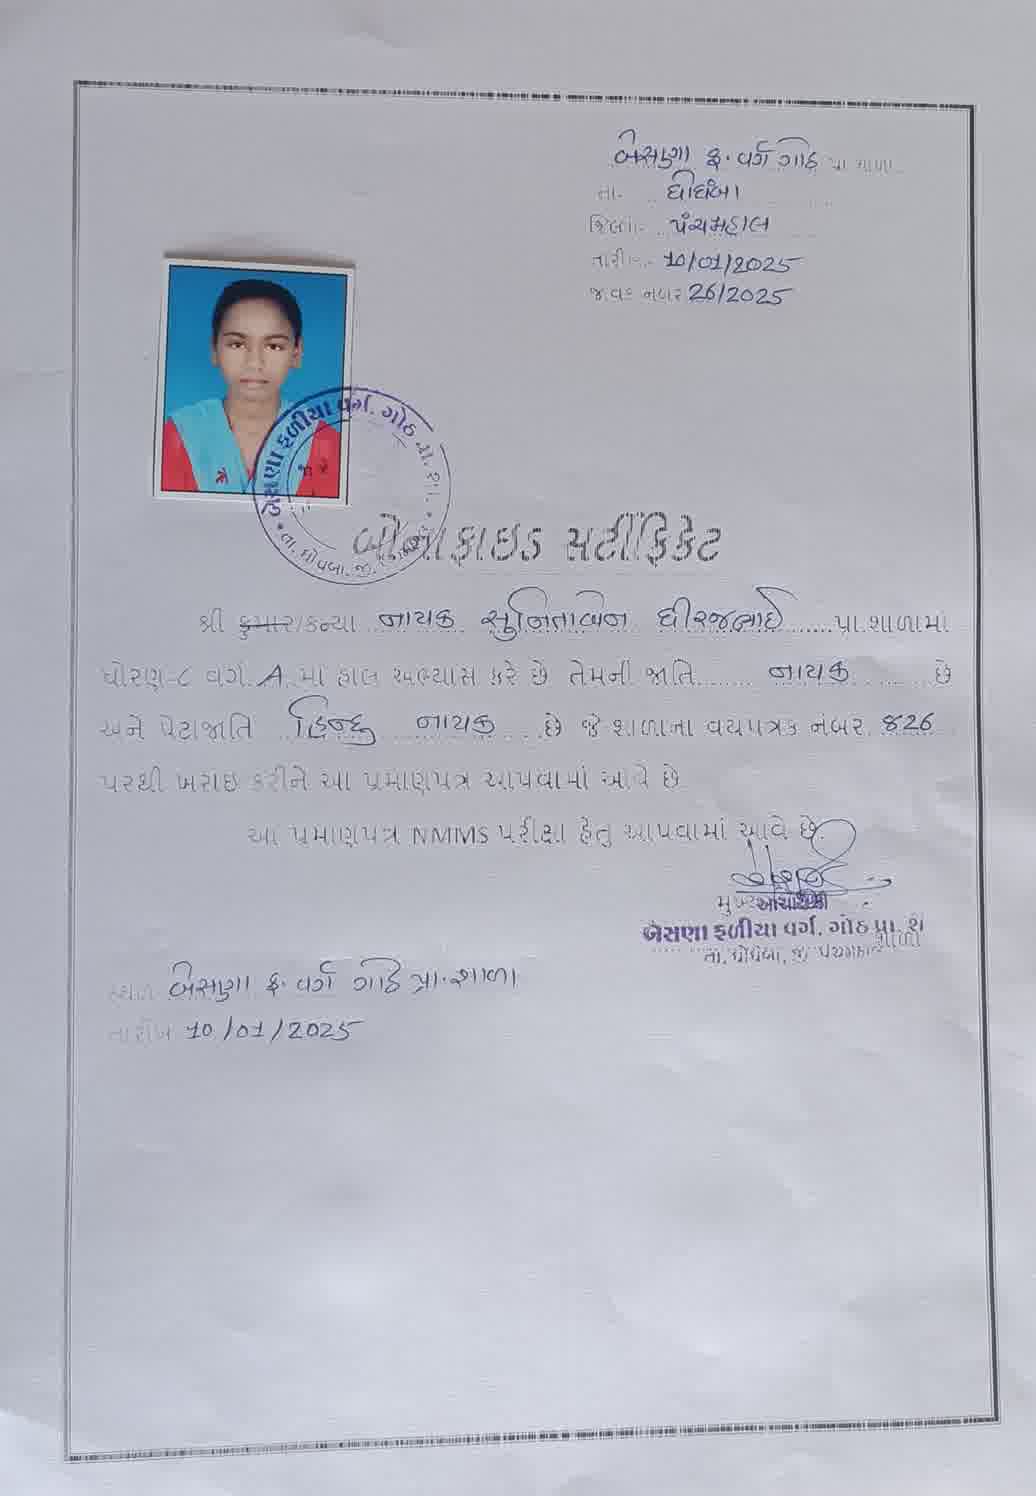 બેસણા ફ. વર્ગ ગોઠ પ્રા. શાળા
તા.- ઘોઘંબા
જિલ્લા:- પંચમહાલ
તારીખ:- 10/01/2025
જાવક નંબર 26/2025
બેસણા ફળીયા વર્ગ. ગોઠ પ્રા. શા.
તા. ઘોઘંબા, જી. પંચમહાલ
બોનાફાઇડ સર્ટીફિકેટ
શ્રી કુમાર/કન્યા નાયક સુનિતાબેન ધીરજભાઈ પ્રા.શાળામાં
ધોરણ-૮ વર્ગ A માં હાલ અભ્યાસ કરે છે તેમની જાતિ નાયક છે
અને પેટાજાતિ હિન્દુ નાયક છે જે શાળાના વયપત્રક નંબર 826
પરથી ખરાઇ કરીને આ પ્રમાણપત્ર આપવામાં આવે છે
આ પ્રમાણપત્ર NMMS પરીક્ષા હેતુ આપવામાં આવે છે.
આચાર્યશ્રી
બેસણા ફળીયા વર્ગ. ગોઠ પ્રા. શાળા
તા. ઘોઘંબા, જી. પંચમહાલ
સ્થળ બેસણા ફ. વર્ગ ગોઠ પ્રા. શાળા
તારીખ 10/01/2025